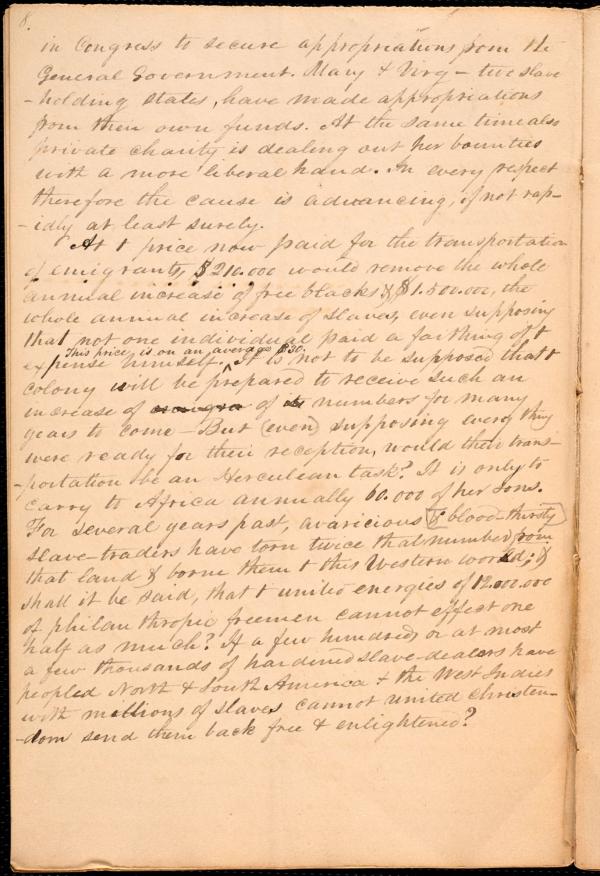 8.
in Congress to secure appropriations from the
General Government. Mary & Virg – two slave
-holding states, have made appropriations
from their own funds. At the same time also
private charity is dealing out her bounties
with a more liberal hand. In every respect
therefore the cause is advancing, if not rap-
-idly at least surely.
At t price now paid for the transportation
of emigrants, $210.000 would remove the whole
annual increase of free blacks & $1.500.000, the
whole annual increase of slaves, even supposing
that not one individual paid a farthing of t
This price is on an average $30.
expense himself. ^ It is not to be supposed that t
colony will be prepared to receive such an
increase of of numbers for many
years to come – But (even) supposing every thing
were ready for their reception, would their trans-
-portation be an Herculean task? It is only to
carry to Africa annually 60.000 of her sons.
For several years past, avaricious & blood-thirsty
slave-traders have torn twice that number from
that land & borne them t this Western world; &
shall it be said, that t united energies of 12.000.000
of philanthropic freemen cannot effect one
half as much? If a few hundreds or at most
a few thousands of hardened slave-dealers have
peopled North & South America & the West Indies
with millions of slaves cannot united christen-
-dom send them back free & enlightened?